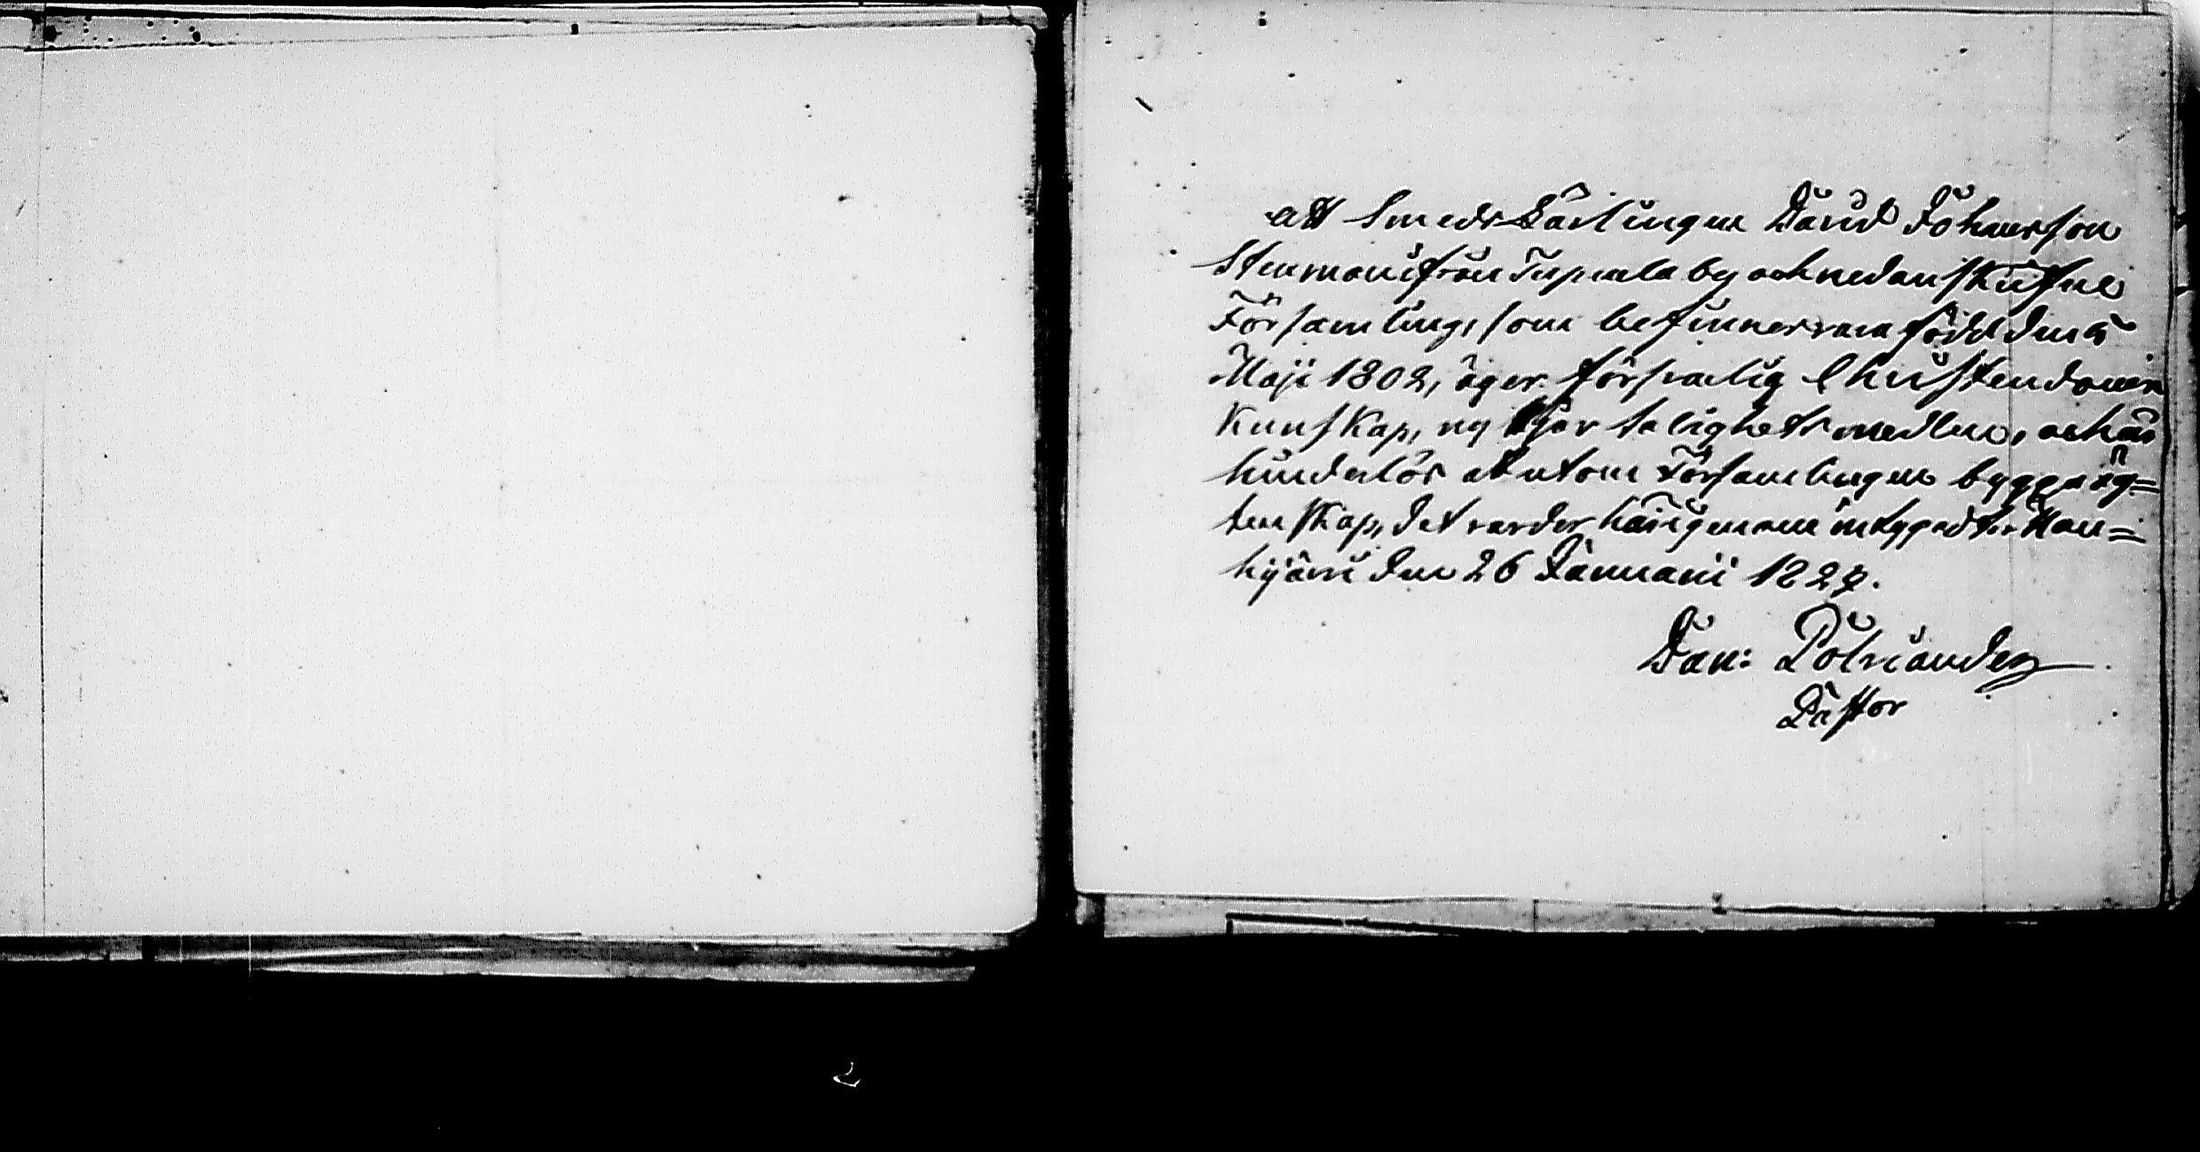 att Smeds Lärlingen David Johansson
Stenman ifrån Tuppurala by och nedanskrifne
Församling, som befinnes vara född den 5
Maji 1802, äger försvarlig Christendoms
Kunskap, nyttjar salighets medlen, och är
hinderlös at utom Församlingen bygga äg=
tenskap, det varder härigenom intygadt. Kau=
hijärvi den 26 Januarii 1827.
Dan: Polviander
Pastor
2